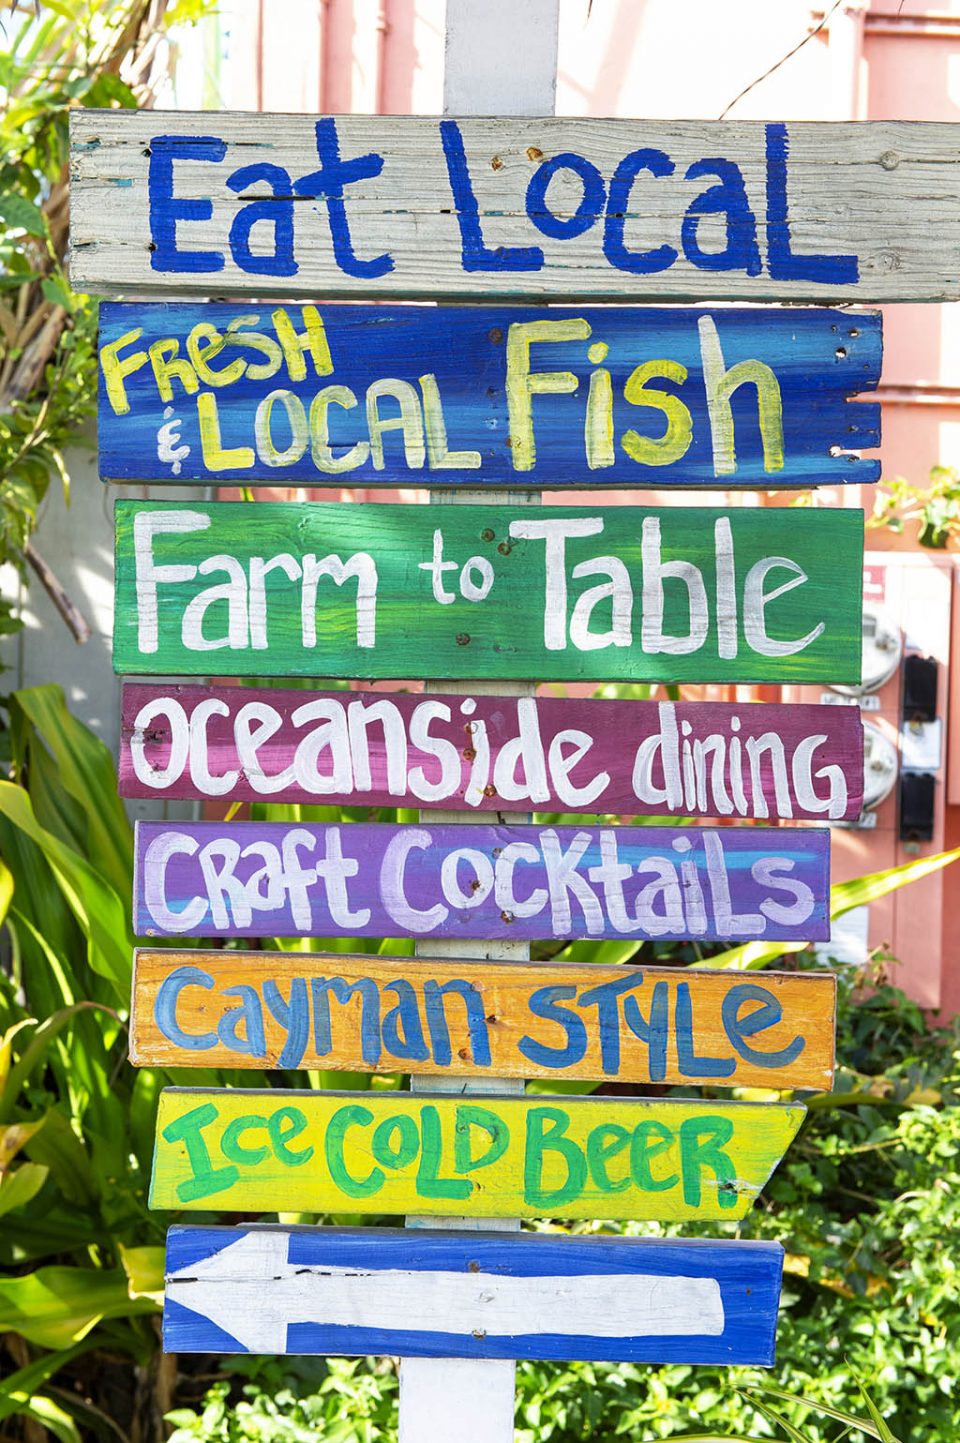 Eat Local
Fresh
& Local Fish
Farm to Table
Oceanside dining
Craft Cocktails
Cayman Style
Ice Cold Beer